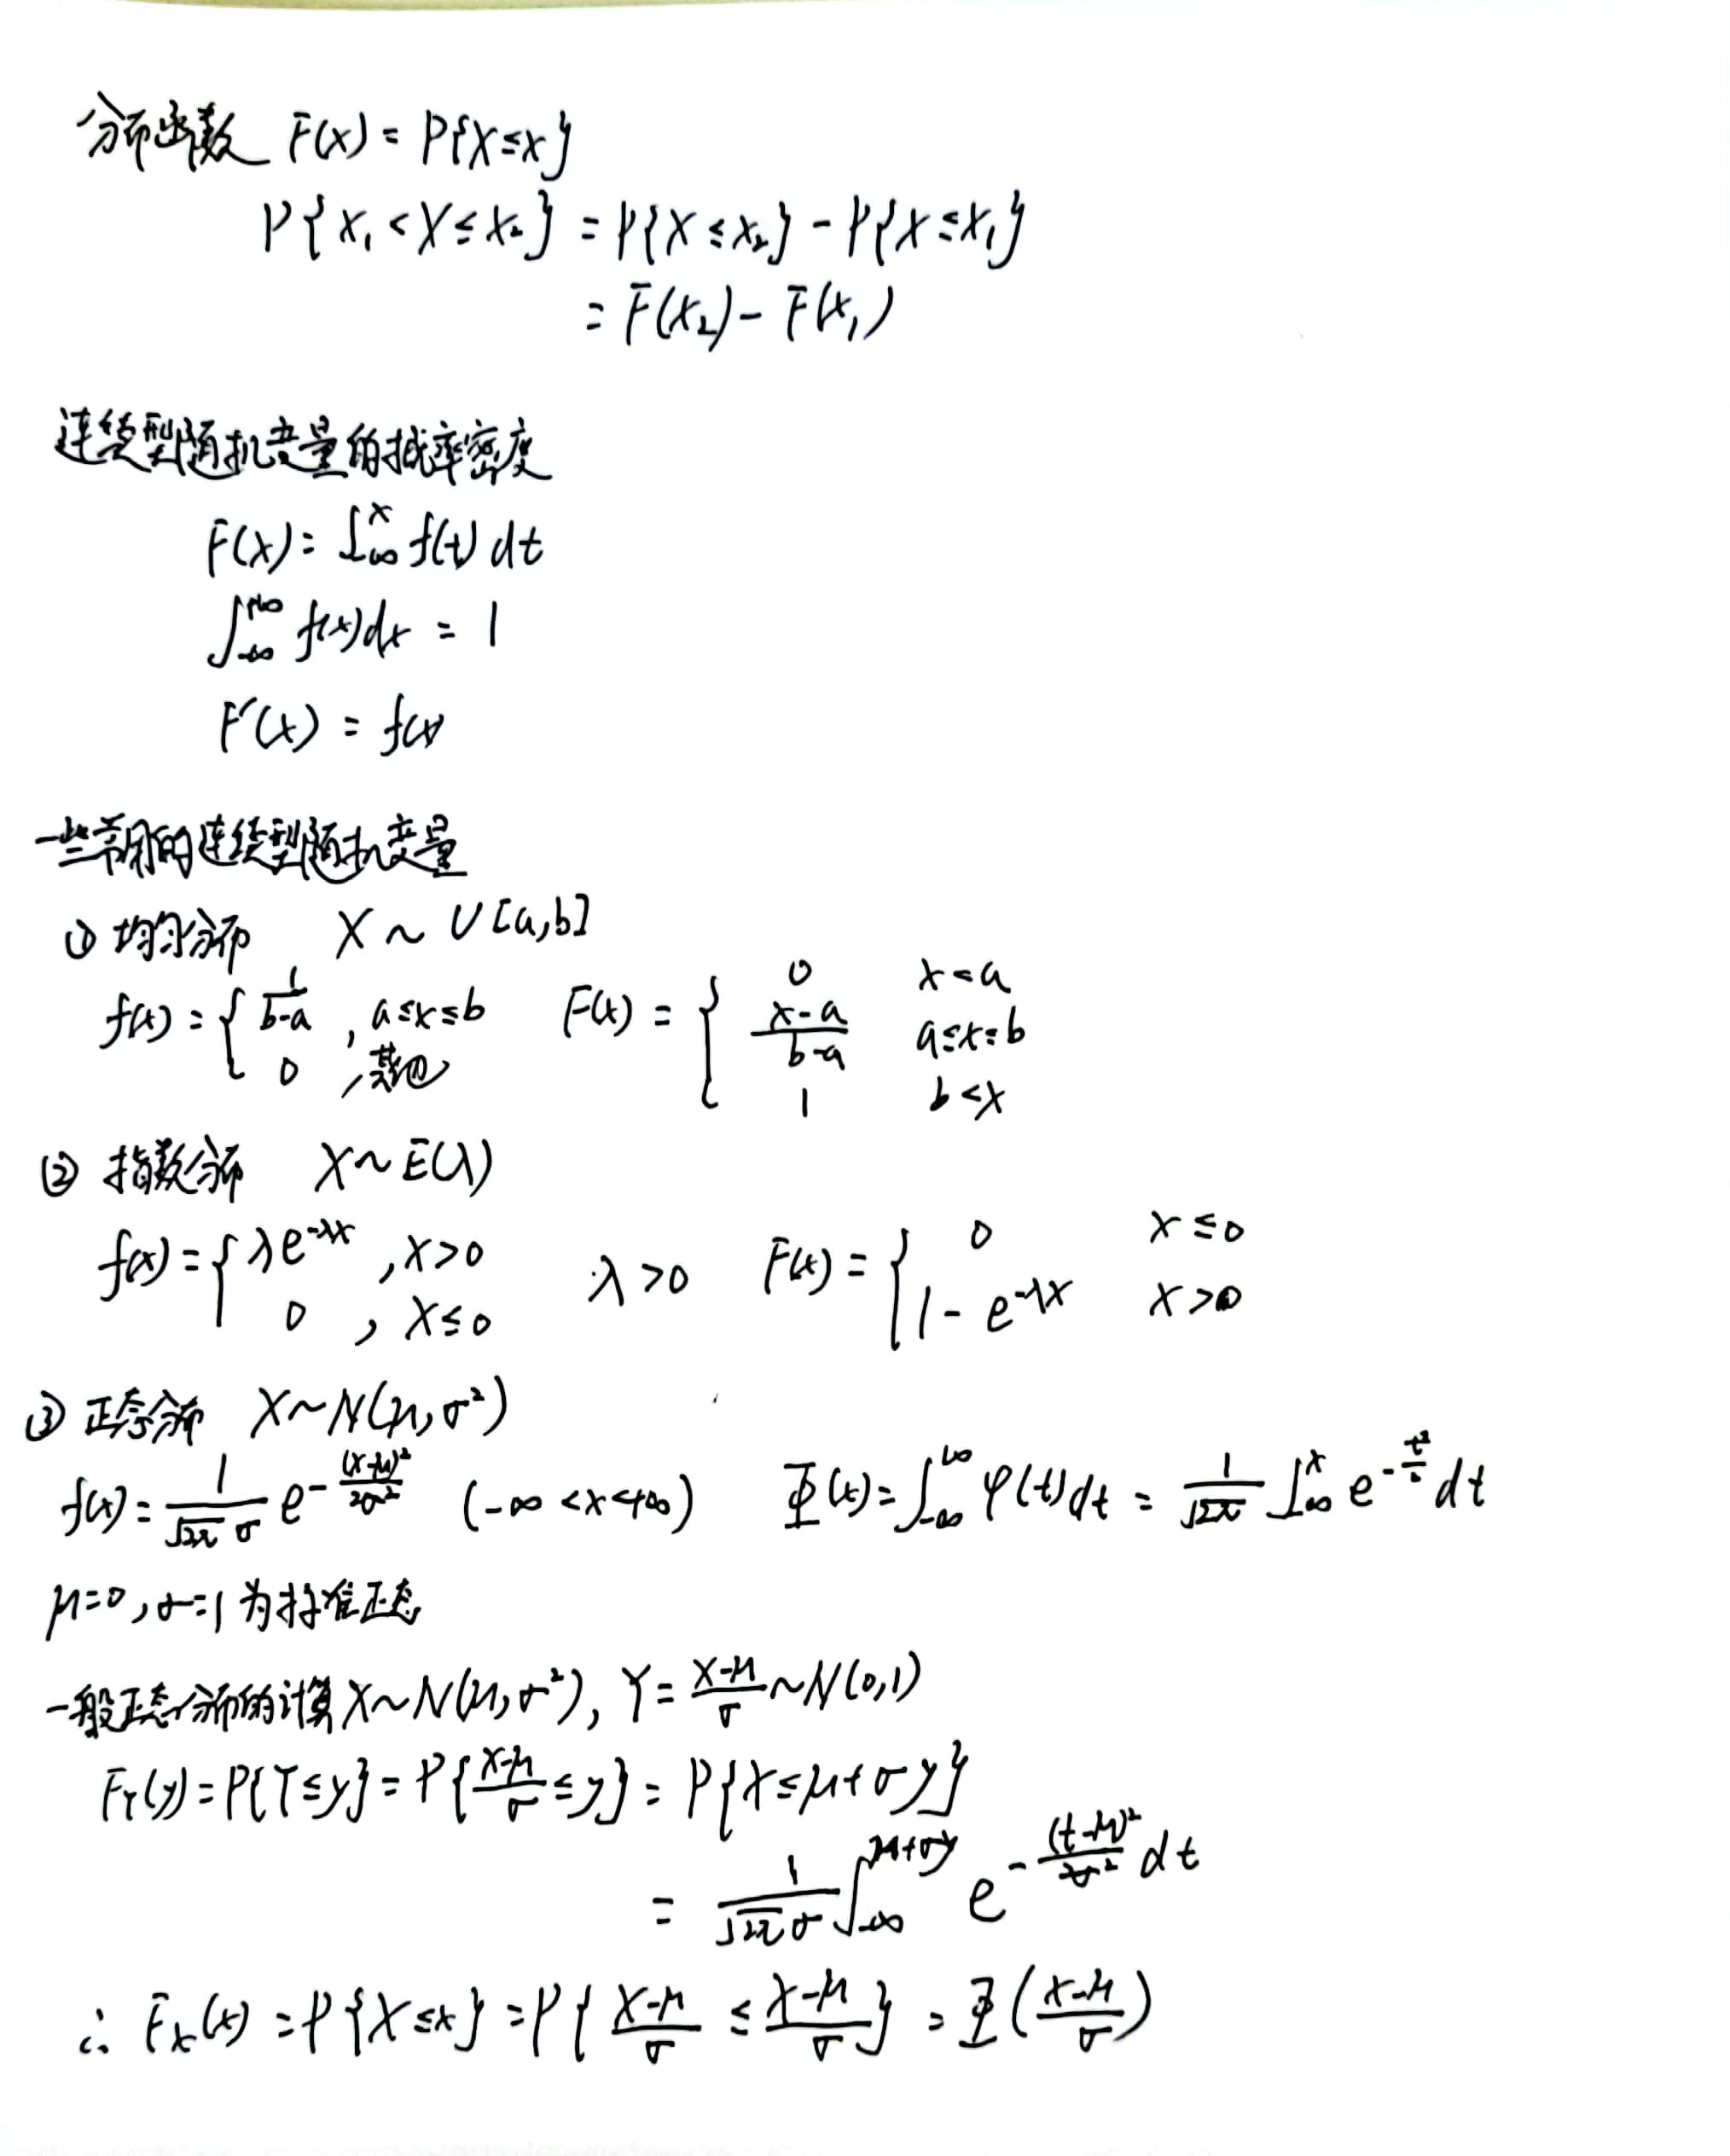 分布函数 F(x) = P{X≤x}
P{x₁<X≤x₂} = P{X≤x₂} - P{X≤x₁}
= F(x₂) - F(x₁)
连续型随机变量的概率密度
F(x) = ∫_{-∞}^{x} f(t) dt
∫_{-∞}^{+∞} f(x)dx = 1
F'(x) = f(x)
一些常用的连续型随机变量
① 均匀分布 X ~ U[a,b]
f(x) = { 1/(b-a) , a≤x≤b ; 0 , 其他 F(x) = { 0 x<a ; (x-a)/(b-a) a≤x≤b ; 1 b<x
② 指数分布 X~E(λ)
f(x) = { λe^{-λx} , x>0 ; 0 , x≤0 λ>0 F(x) = { 0 x≤0 ; 1-e^{-λx} x>0
③ 正态分布 X~N(μ,σ²)
f(x) = 1/(√2π σ) e^{-(x-μ)²/2σ²} (-∞<x<+∞) Φ(x) = ∫_{-∞}^{∞} φ(t)dt = 1/√2π ∫_{-∞}^{x} e^{-t²/2} dt
μ=0,σ=1为标准正态
一般正态分布的计算 X~N(μ,σ²), Y = (X-μ)/σ ~N(0,1)
F_Y(y) = P{Y≤y} = P{(X-μ)/σ ≤y} = P{X≤μ+σy}
= 1/(√2π σ) ∫_{-∞}^{μ+σy} e^{-(t-μ)²/2σ²} dt
∴ F_X(x) = P{X≤x} = P{(X-μ)/σ ≤ (x-μ)/σ} = Φ((x-μ)/σ)